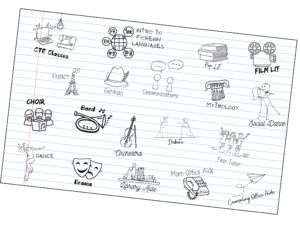 CTE Classes
INTRO TO
FOREIGN
LANGUAGES
Pop LIT
FILM LIT
French
German
Communications
MYTHOLOGY
Social Dance
CHOIR
Band
Orchestra
Debate
Peer Tutor
DANCE
Drama
Library Aide
Main Office Aide
Counseling Office Aide